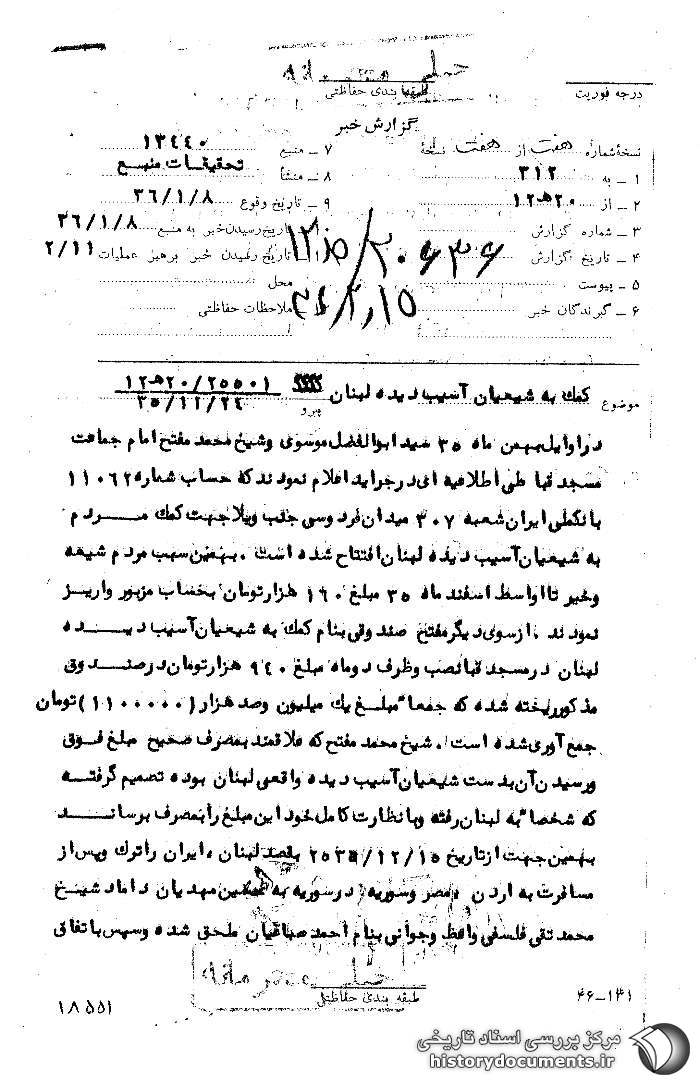 خیلی محرمانه
طبقه بندی حفاظتی
درجه فوریت
گزارش خبر
نسخهٔ شماره هفت از هفت نسخهٔ
۱ ـ به ۳۱۲
۲ ـ از ۲۰ه۱۲
۳ ـ شماره گزارش ۲۰۶۳۶/
۴ ـ تاریخ گزارش ۳۶/۲/۱۵
۵ ـ پیوست
۶ ـ گیرندگان خبر
۷ ـ منبع ۱۳۴۴۰
۸ ـ منشأ تحقیقات منبع
۹ ـ تاریخ وقوع ۳۶/۱/۸
تاریخ رسیدن خبر به منبع ۳۶/۱/۸
تاریخ رسیدن خبر برهبر عملیات محل ۲/۱۱
ملاحظات حفاظتی
موضوع کمك به شیعیان آسیب دیده لبنان پیرو ۲۵۵۰۱/۲۰ه۱۲
۳۵/۱۱/۲۴
در اوایل بهمن ماه ۳۵ سید ابوالفضل موسوی وشیخ محمد مفتح امام جماعت
مسجد قبا طی اطلاعیه ای در جراید اعلام نمودند که حساب شماره ۱۱۰۶۲
بانك ملی ایران شعبه ۳۰۷ میدان فردوسی جنب ویلا جهت کمك مردم
به شیعیان آسیب دیده لبنان افتتاح شده است . بهمین سبب مردم شیعه
وخیر تا اواسط اسفند ماه ۳۵ مبلغ ۱۶۰ هزارتومان بحساب مزبور واریز
نمودند . ازسوی دیگر مفتح صندوقی بنام کمك به شیعیان آسیب دیده
لبنان در مسجد قبا نصب وظرف دوماه مبلغ ۹۴۰ هزارتومان در صندوق
مذکور ریخته شده که جمعا" مبلغ یك میلیون وصد هزار (۱۱۰۰۰۰۰) تومان
جمع آوری شده است . شیخ محمد مفتح که علاقمند بمصرف صحیح مبلغ فوق
ورسیدن آن بدست شیعیان آسیب دیده واقعی لبنان بوده تصمیم گرفته
که شخصا" به لبنان رفته وبا نظارت کامل خود این مبلغ را بمصرف برساند
بهمین جهت از تاریخ ۲۵۳۵/۱۲/۱۵ بقصد لبنان ، ایران را ترك وپس از
مسافرت به اردن ، مصر وسوریه ، در سوریه به مهدیان داماد شیخ
محمد تقی فلسفی واعظ وجوانی بنام احمد صباغیان ملحق شده وسپس باتفاق
خیلی محرمانه
طبقه بندی حفاظتی
۴۶-۱۳۱
۱۸۵۵۱
مرکز بررسی اسناد تاریخی
historydocuments.ir